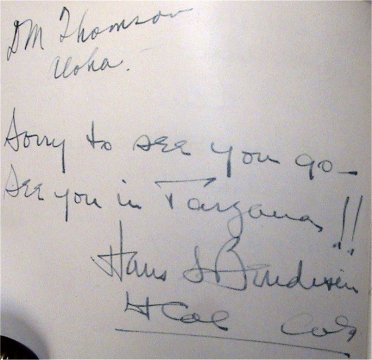 DM Thomson
Aloha.
Sorry to see you go -
see you in Tarzana!!
Hans J Bendixen